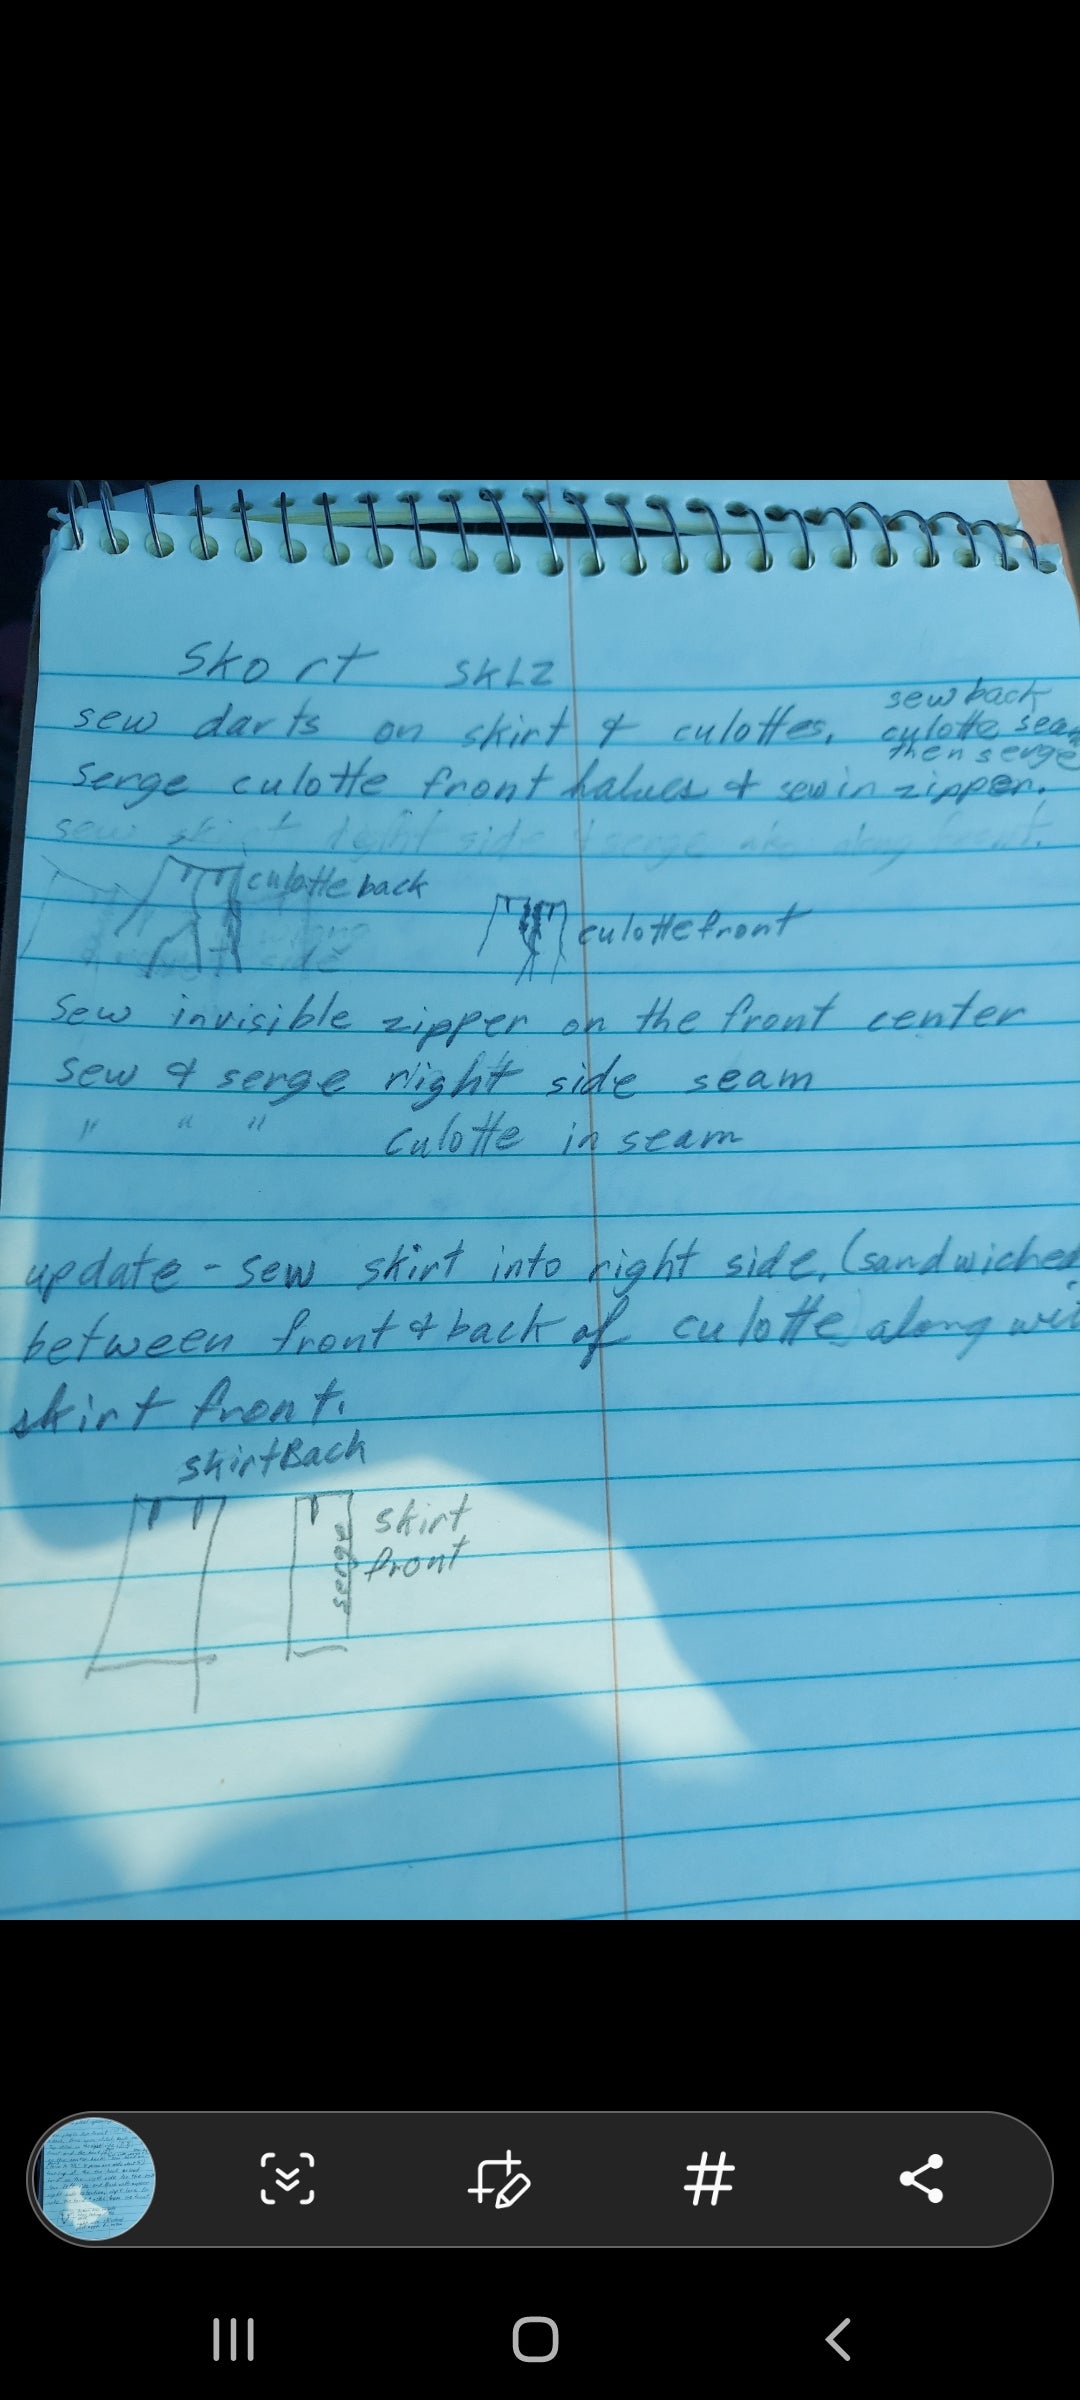 Skort SKLZ
sew darts on skirt & culottes. sew back
culotte seam
then serge
Serge culotte front halves & sew in zipper.
sew skirt right side & serge also along front.
culotte back
culotte front
side
Sew invisible zipper on the front center
sew & serge right side seam
" " " culotte in seam
update - sew skirt into right side. (sandwiched
between front & back of culotte along wit
skirt front.
skirt Back
skirt
front
serge